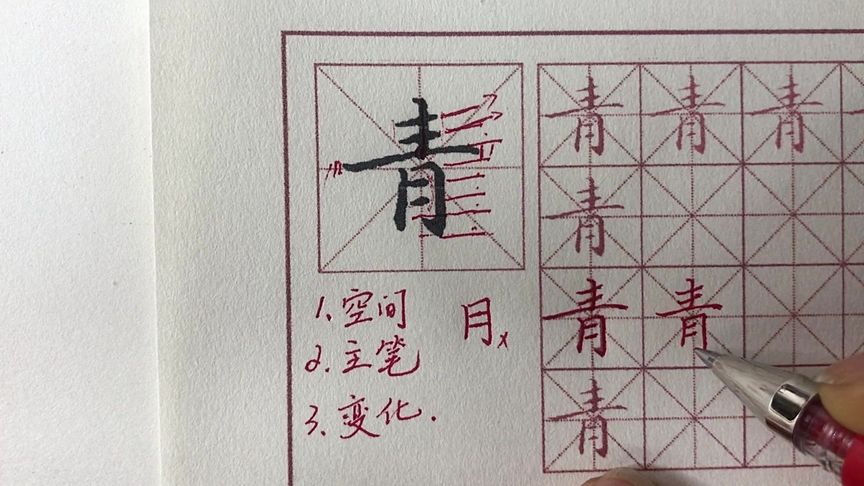 青
1.空间
2.主笔
3.变化.
月x
青 青 青
青
青 青
青